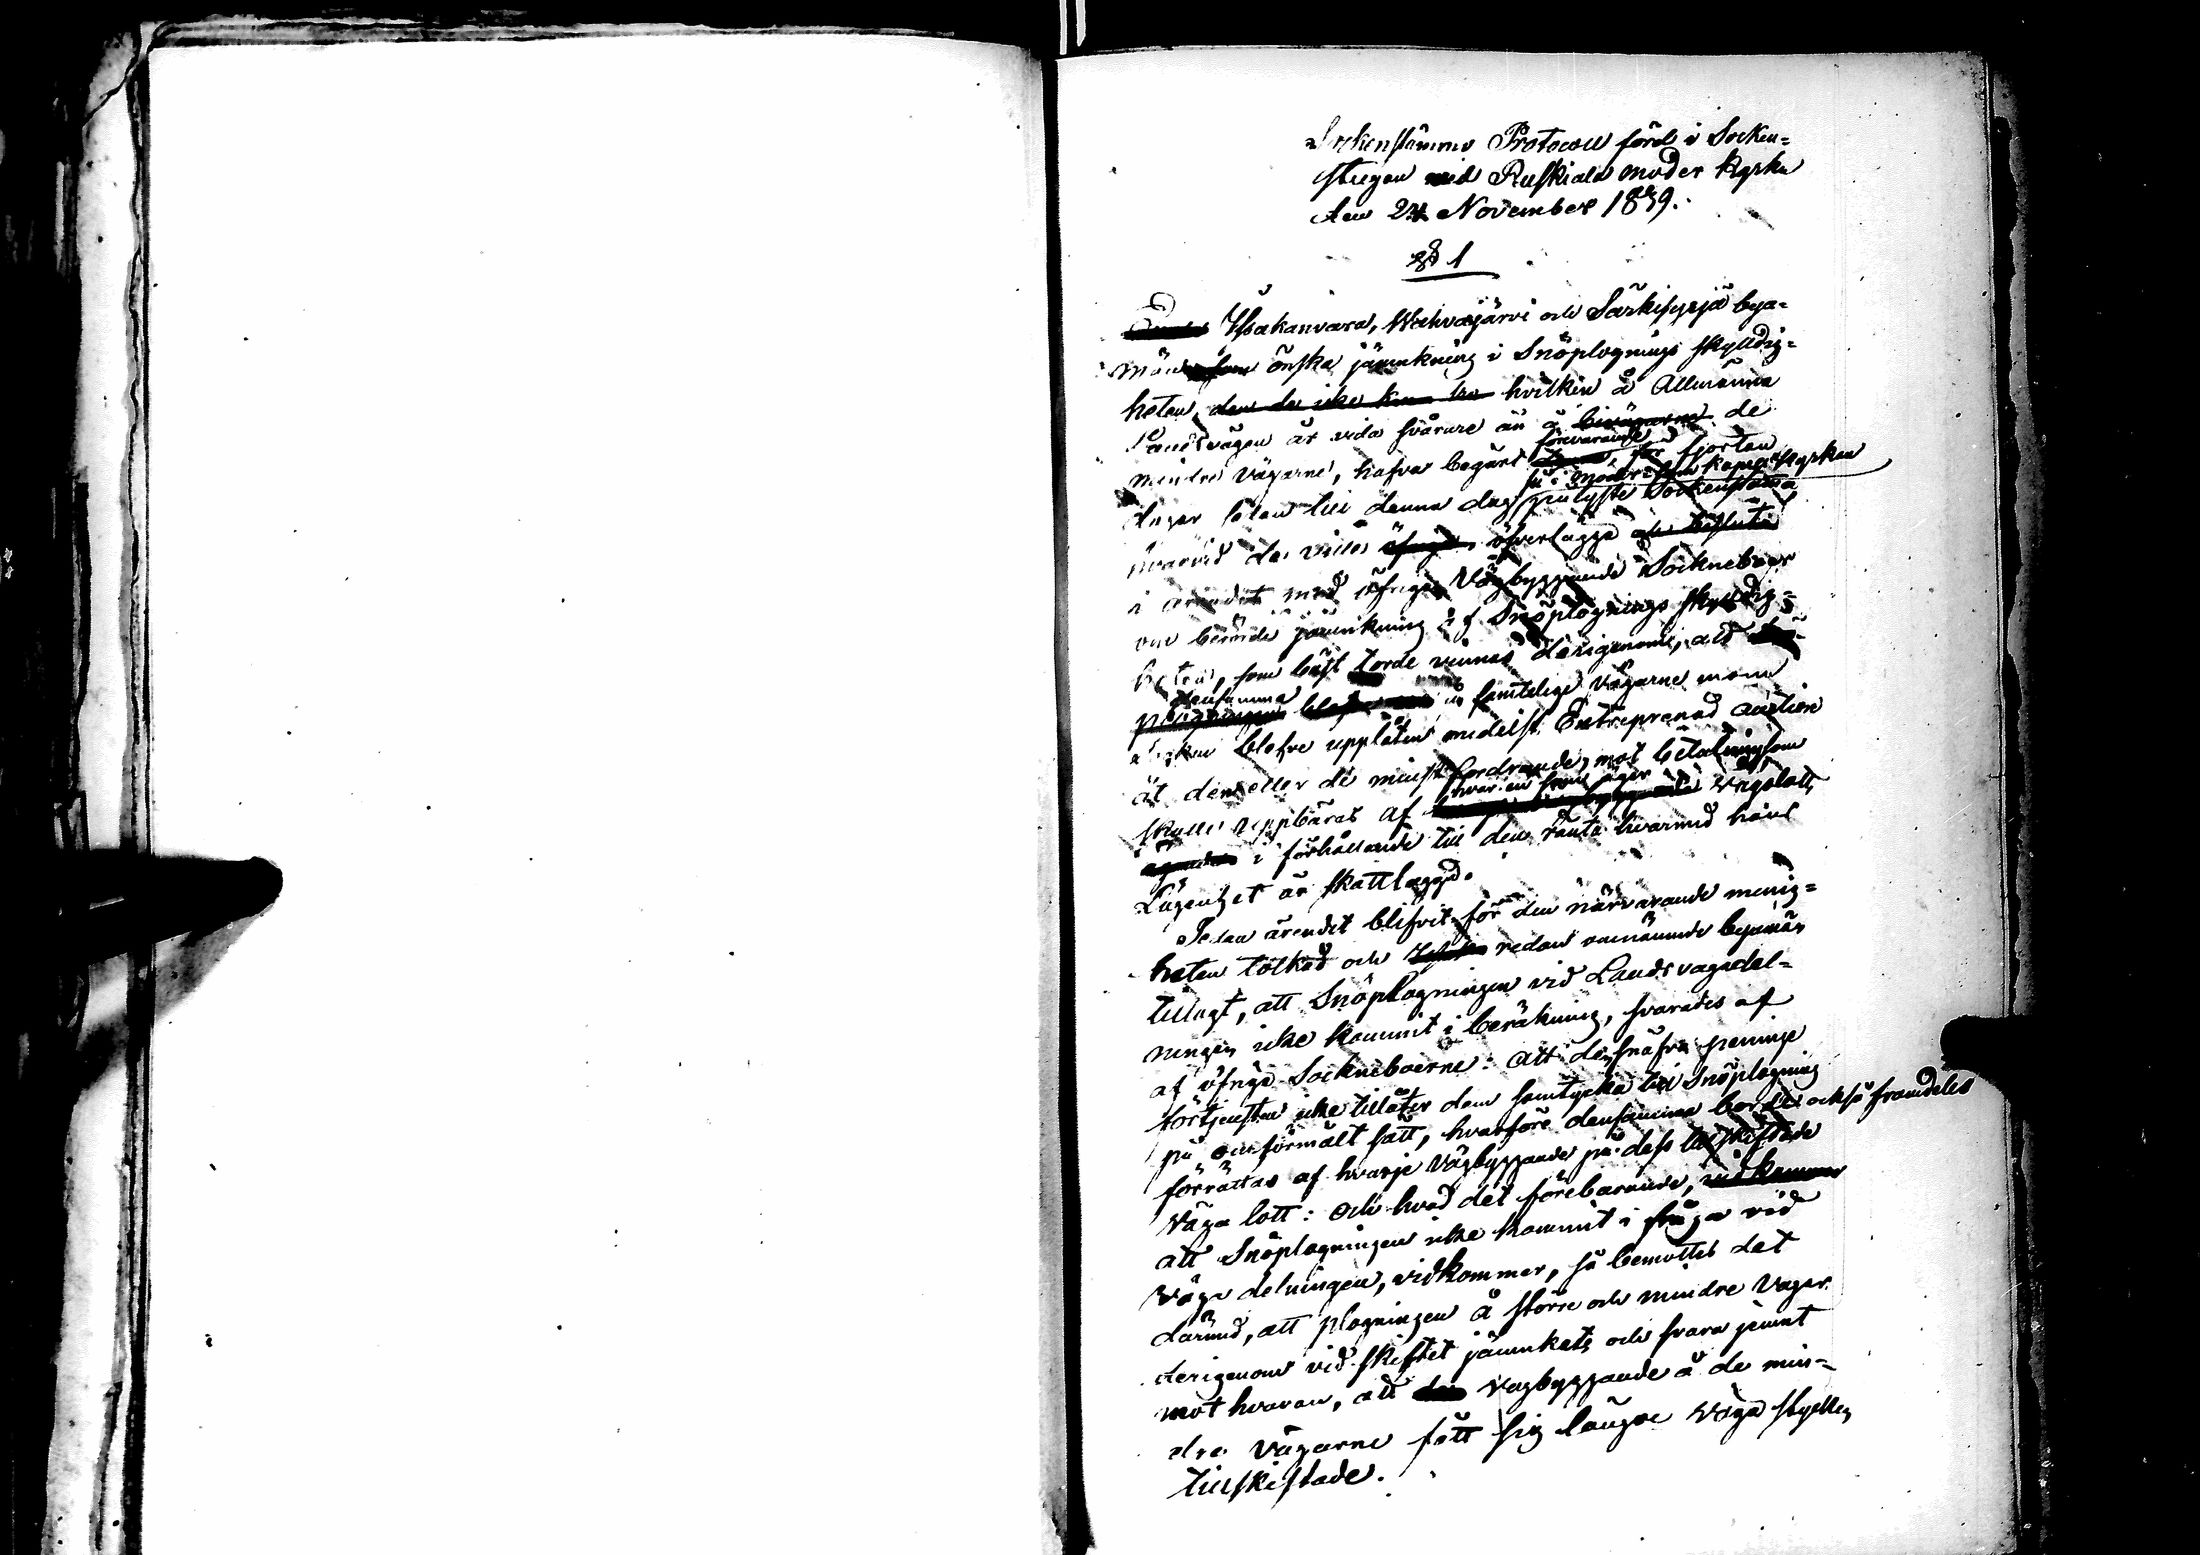 Sockenstämmo Protocoll förd i Socken=
stugan vid Ruskiala moder kyrka
den 24 November 1839.
§ 1
Ihakanvara, Wahvajärvi och Särkisyrjä bya=
män önska jämnkning i Snöplognings skyldig=
heten, den de icke hvilken å Allmänna
Landsvägen är vida svårare än å bivägarne de
mindre vägarne, hafva begärt förevarande för fjorton
dagar sedan till denna dag så i moder som kapell kyrkan
pålyste Sockenstäma,
hvarvid de ville öfverlägga och besluta
i ärendet med öfrige Vägbyggande Sockneboer
om berörde jämnkning af Snöplognings skyldig=
heten, som bäst torde vinnas derigenom, att
densamma å samtelige vägarne inom
socken blefve upplåten medelst Entreprenad auction
åt den eller de minst fordrande, mot betalning som
skulle uppbäras af hvar en som äger Vägalott
ägande i förhållande till den ränta hvarmed hans
Lägenhet är skattlaggd.
Sedan ärendet blifvit för den närvarande menig=
heten tolkad och redan omnämnde byamän
tillagt, att Snöplogningen vid Landsvägadel=
ningen icke kommit i beräkning, svarades af
af öfrige Sockneboerne: att de snäfva peninge
förtjensten icke tillåter dem samtycka till Snöplogning
på omförmält sätt, hvarföre densamma borde också framdeles
förrättas af hvarje Vägbyggande på dess tillskiftade
Väga lott: och hvad det förebärande, vidkommer
att Snöplogningen icke kommit i fråga vid
Väga delningen, vidkommer, så bemöttes det
därmed, att plogningen å större och mindre vägar
derigenom vid skiftet jämnkats och svara jemnt
mot hvaran, att Vägbyggande å de min=
dre vägarne fått sig längre Väga stycken
tillskiftade.